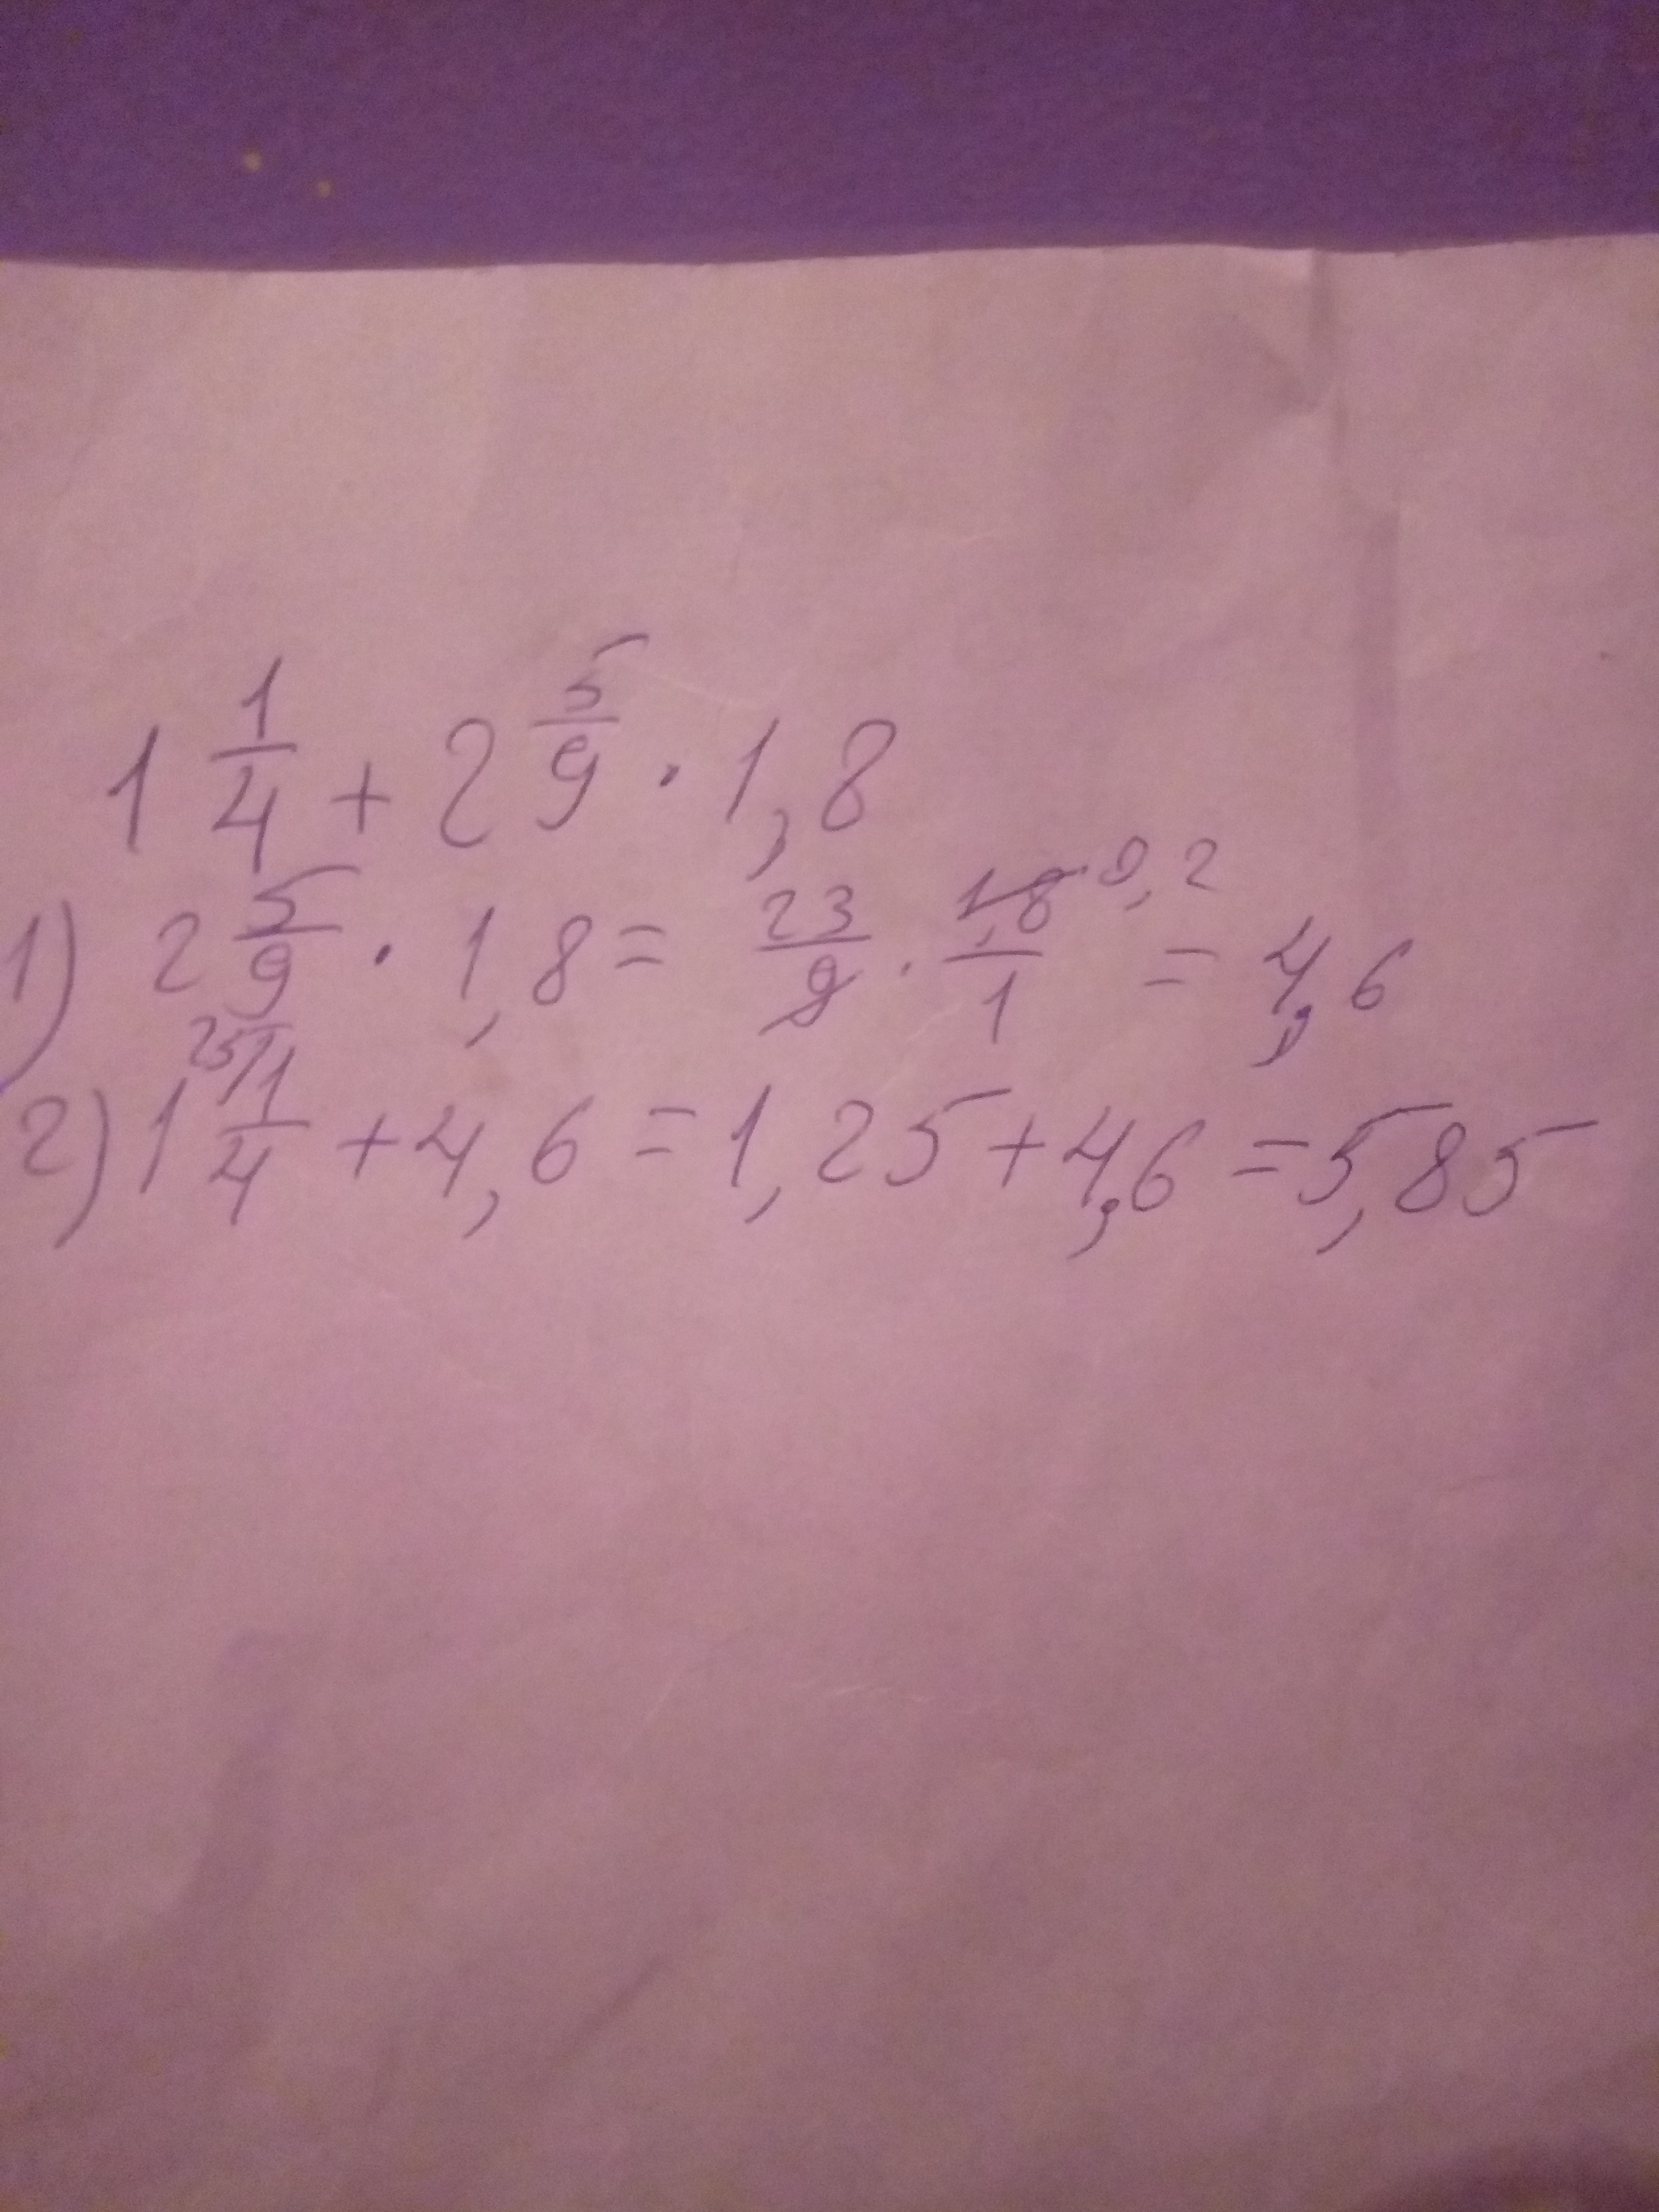 1 1/4 + 2 5/9 · 1,8
1) 2 5/9 · 1,8 = 23/9 · 1,8/1 0,2 = 4,6
2) 1 25/1/4 + 4,6 = 1,25 + 4,6 = 5,85